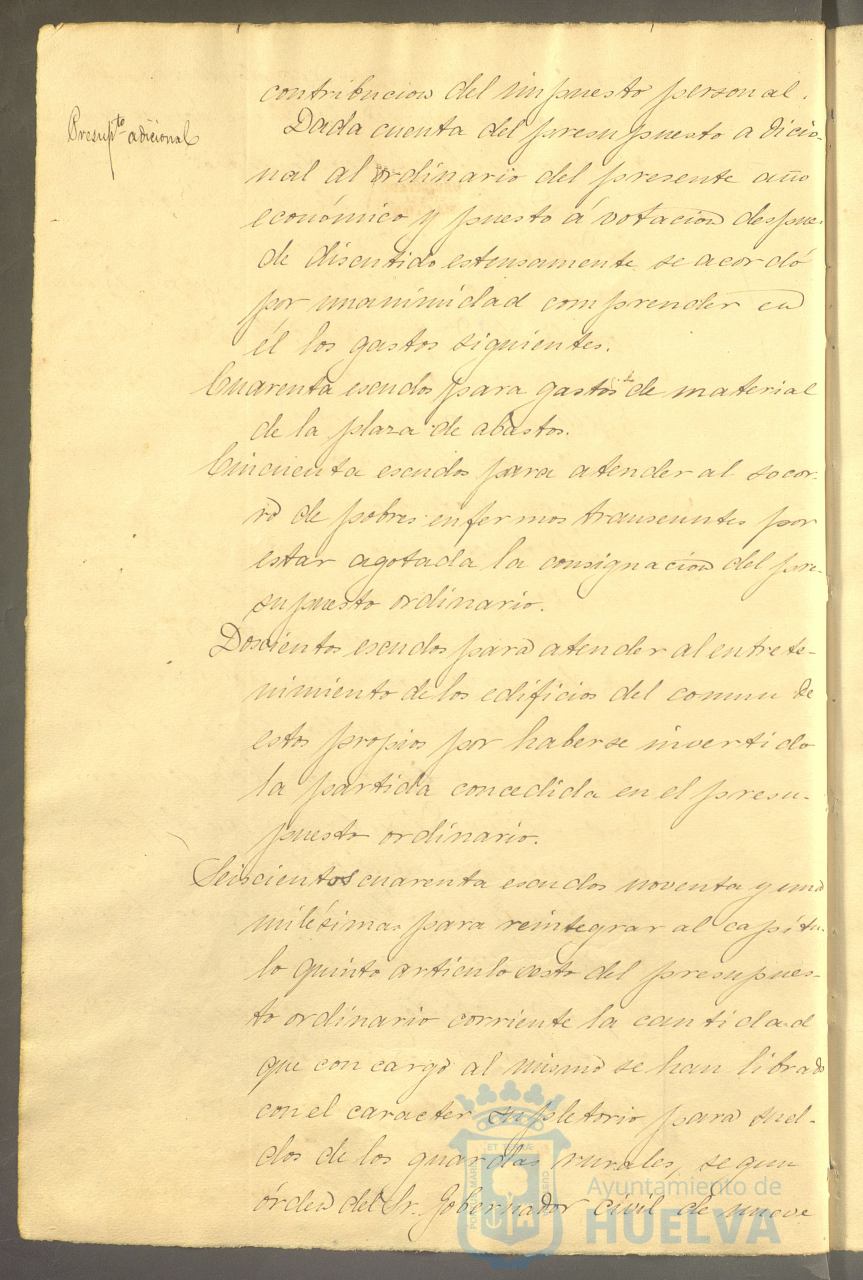 contribucion del impuesto personal.
Presup.to adicional
Dada cuenta del presupuesto adicio-
nal al ordinario del presente año
económico y puesto á votacion despues
de discutido estensamente se acordó
por unanimidad comprender en
él los gastos siguientes.
Cuarenta escudos para gastos de material
de la plaza de abastos.
Cincuenta escudos para atender al socor-
ro de pobres enfermos transeuntes por
estar agotada la consignacion del pre-
supuesto ordinario.
Doscientos escudos para atender al entrete-
nimiento de los edificios del comun de
estos propios por haberse invertido
la partida concedida en el presu-
puesto ordinario.
Seiscientos cuarenta escudos noventa y una
milésimas para reintegrar al capítu-
lo quinto artículo sesto del presupues-
to ordinario corriente la cantidad
que con cargo al mismo se han librado
con el caracter supletorio para suel-
dos de los guardas rurales, segun
órden del Sr. Gobernador civil de nueve
Ayuntamiento de
HUELVA